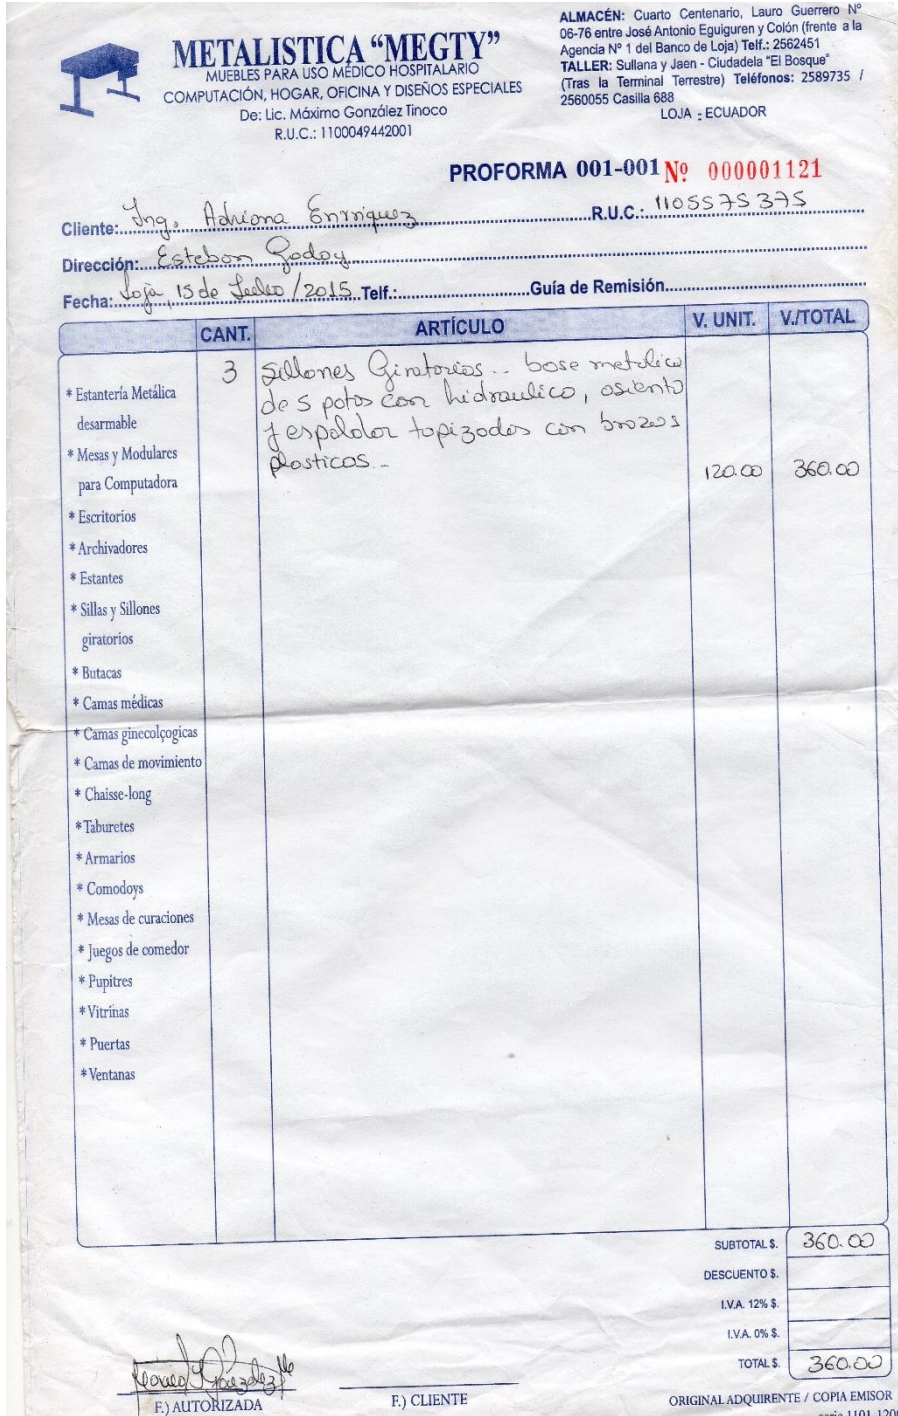 METALISTICA "MEGTY"
MUEBLES PARA USO MÉDICO HOSPITALARIO
COMPUTACIÓN, HOGAR, OFICINA Y DISEÑOS ESPECIALES
De: Lic. Máximo González Tinoco
R.U.C.: 1100049442001
ALMACÉN: Cuarto Centenario, Lauro Guerrero Nº
06-76 entre José Antonio Eguiguren y Colón (frente a la
Agencia Nº 1 del Banco de Loja) Telf.: 2562451
TALLER: Sullana y Jaen - Ciudadela "El Bosque"
(Tras la Terminal Terrestre) Teléfonos: 2589735 /
2560055 Casilla 688
LOJA - ECUADOR
PROFORMA 001-001 Nº 000001121
Cliente: Ing. Adriana Enrriquez R.U.C.: 1105575375
Dirección: Esteban Godoy
Fecha: Loja, 15 de Julio /2015 Telf.: Guía de Remisión
CANT. ARTÍCULO V. UNIT. V./TOTAL
3 Sillones Giratorios.. base metalica
de 5 patas con hidraulico, asiento
y espaldar tapizados con brazos
plasticos.-
120.00 360.00
* Estantería Metálica
desarmable
* Mesas y Modulares
para Computadora
* Escritorios
* Archivadores
* Estantes
* Sillas y Sillones
giratorios
* Butacas
* Camas médicas
* Camas ginecolçogicas
* Camas de movimiento
* Chaisse-long
* Taburetes
* Armarios
* Comodoys
* Mesas de curaciones
* Juegos de comedor
* Pupitres
* Vitrinas
* Puertas
* Ventanas
SUBTOTAL $. 360.00
DESCUENTO $.
I.V.A. 12% $.
I.V.A. 0% $.
TOTAL $. 360.00
F.) AUTORIZADA
F.) CLIENTE
ORIGINAL ADQUIRENTE / COPIA EMISOR
serie 1101-1200